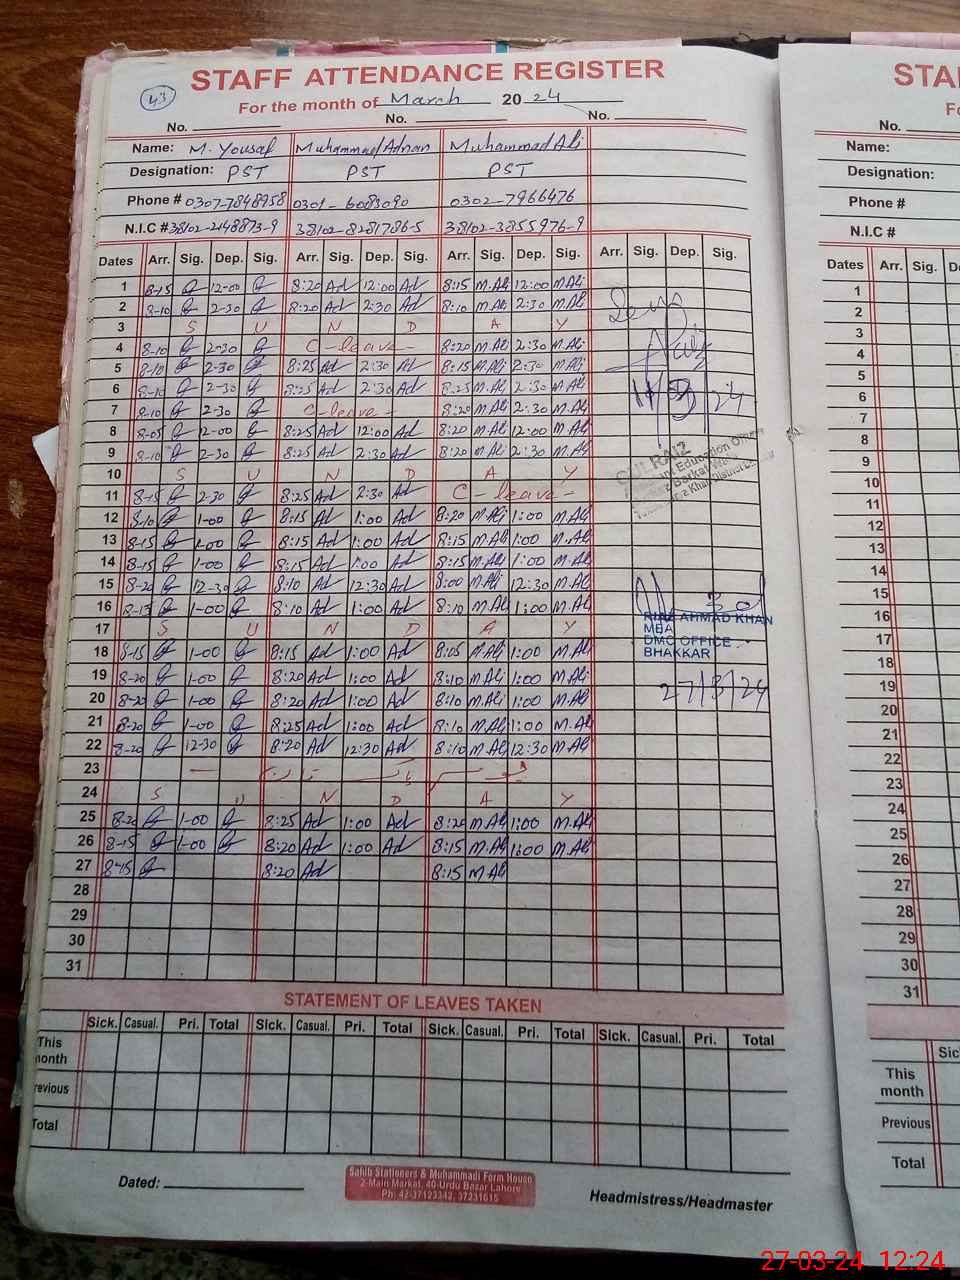 STAFF ATTENDANCE REGISTER
43 For the month of March 2024
No. No. No.
Name: M. Yousaf Muhammad Adnan Muhammad Ali
Designation: PST PST PST
Phone # 0307-7848958 0301-6083090 0302-7966476
N.I.C # 38102-2148873-9 38102-8281786-5 38102-3855976-9
Dates Arr. Sig. Dep. Sig. Arr. Sig. Dep. Sig. Arr. Sig. Dep. Sig. Arr. Sig. Dep. Sig.
1 8-15 12-00 8:20 Ad 12:00 Ad 8:15 M.Ali 12:00 M.Ali
2 8-10 2-30 8:20 Ad 2:30 Ad 8:10 M.Ali 2:30 M.Ali
3 S U N D A Y
4 8-10 2-30 C-leave- 8:20 M.Ali 2:30 M.Ali
5 8-10 2-30 8:25 Ad 2:30 Ad 8:15 M.Ali 2:30 M.Ali
6 8-10 2-30 8:25 Ad 2:30 Ad 8:25 M.Ali 2:30 M.Ali
7 8-10 2-30 C-leave- 8:20 M.Ali 2:30 M.Ali
8 8-05 12-00 8:25 Ad 12:00 Ad 8:20 M.Ali 12:00 M.Ali
9 8-10 2-30 8:25 Ad 2:30 Ad 8:20 M.Ali 2:30 M.Ali
10 S U N D A Y
11 8-15 2-30 8:25 Ad 2:30 Ad C-leave-
12 8-10 1-00 8:15 Ad 1:00 Ad 8:20 M.Ali 1:00 M.Ali
13 8-15 1-00 8:15 Ad 1:00 Ad 8:15 M.Ali 1:00 M.Ali
14 8-15 1-00 8:15 Ad 1:00 Ad 8:15 M.Ali 1:00 M.Ali
15 8-20 12-30 8:10 Ad 12:30 Ad 8:00 M.Ali 12:30 M.Ali
16 8-15 1-00 8:10 Ad 1:00 Ad 8:10 M.Ali 1:00 M.Ali
17 S U N D A Y
18 8-15 1-00 8:15 Ad 1:00 Ad 8:05 M.Ali 1:00 M.Ali
19 8-20 1-00 8:20 Ad 1:00 Ad 8:10 M.Ali 1:00 M.Ali
20 8-20 1-00 8:20 Ad 1:00 Ad 8:10 M.Ali 1:00 M.Ali
21 8-20 1-00 8:25 Ad 1:00 Ad 8:10 M.Ali 1:00 M.Ali
22 8-20 12-30 8:20 Ad 12:30 Ad 8:10 M.Ali 12:30 M.Ali
23
24 S U N D A Y
25 8-20 1-00 8:25 Ad 1:00 Ad 8:20 M.Ali 1:00 M.Ali
26 8-15 1-00 8:20 Ad 1:00 Ad 8:15 M.Ali 1:00 M.Ali
27 8-15 8:20 Ad 8:15 M.Ali
28
29
30
31
GULRAIZ
Education Officer
AHMAD KHAN
MBA
DMC OFFICE
BHAKKAR
27/3/24
STATEMENT OF LEAVES TAKEN
Sick. Casual. Pri. Total Sick. Casual. Pri. Total Sick. Casual. Pri. Total Sick. Casual. Pri. Total
This
month
revious
Total
Dated:
Sahib Stationers & Muhammadi Form House
2-Main Market, 40-Urdu Bazar Lahore
Ph: 42-37123342, 37231615
Headmistress/Headmaster
STA
Fo
No.
Name:
Designation:
Phone #
N.I.C #
Dates Arr. Sig. D
1
2
3
4
5
6
7
8
9
10
11
12
13
14
15
16
17
18
19
20
21
22
23
24
25
26
27
28
29
30
31
Sic
This
month
Previous
Total
27-03-24 12:24